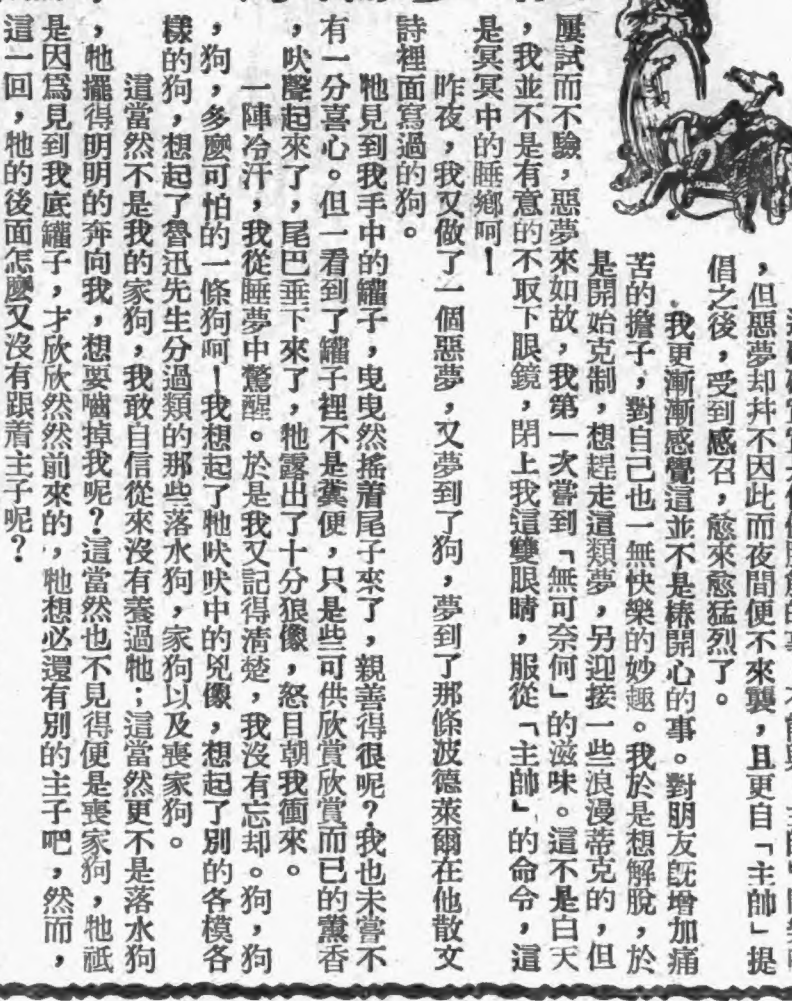 ，但惡夢却幷不因此而夜間便不來襲，且更自「主帥」提
倡之後，受到感召，愈來愈猛烈了。
我更漸漸感覺這並不是樁開心的事。對朋友旣增加痛
苦的擔子，對自己也一無快樂的妙趣。我於是想解脫，於
是開始克制，想趕走這類夢，另迎接一些浪漫蒂克的，但
屢試而不驗，惡夢來如故，我第一次嘗到「無可奈何」的滋味。這不是白天
，我並不是有意的不取下眼鏡，閉上我這雙眼睛，服從「主帥」的命令，這
是冥冥中的睡鄉呵！
昨夜，我又做了一個惡夢，又夢到了狗，夢到了那條波德萊爾在他散文
詩裡面寫過的狗。
牠見到我手中的罐子，曳曳然搖着尾子來了，親善得很呢？我也未嘗不
有一分喜心。但一看到了罐子裡不是糞便，只是些可供欣賞欣賞而已的薰香
，吠聲起來了，尾巴垂下來了，牠露出了十分狠像，怒目朝我衝來。
一陣冷汗，我從睡夢中驚醒。於是我又記得清楚，我沒有忘却。狗，狗
，狗，多麼可怕的一條狗呵！我想起了牠吠吠中的兇像，想起了別的各模各
樣的狗，想起了魯迅先生分過類的那些落水狗，家狗以及喪家狗。
這當然不是我的家狗，我敢自信從來沒有養過牠；這當然更不是落水狗
，牠擺得明明的奔向我，想要嚙掉我呢？這當然也不見得便是喪家狗，牠祇
是因爲見到我底罐子，才欣欣然然前來的，牠想必還有別的主子吧，然而，
這一回，牠的後面怎麼又沒有跟着主子呢？